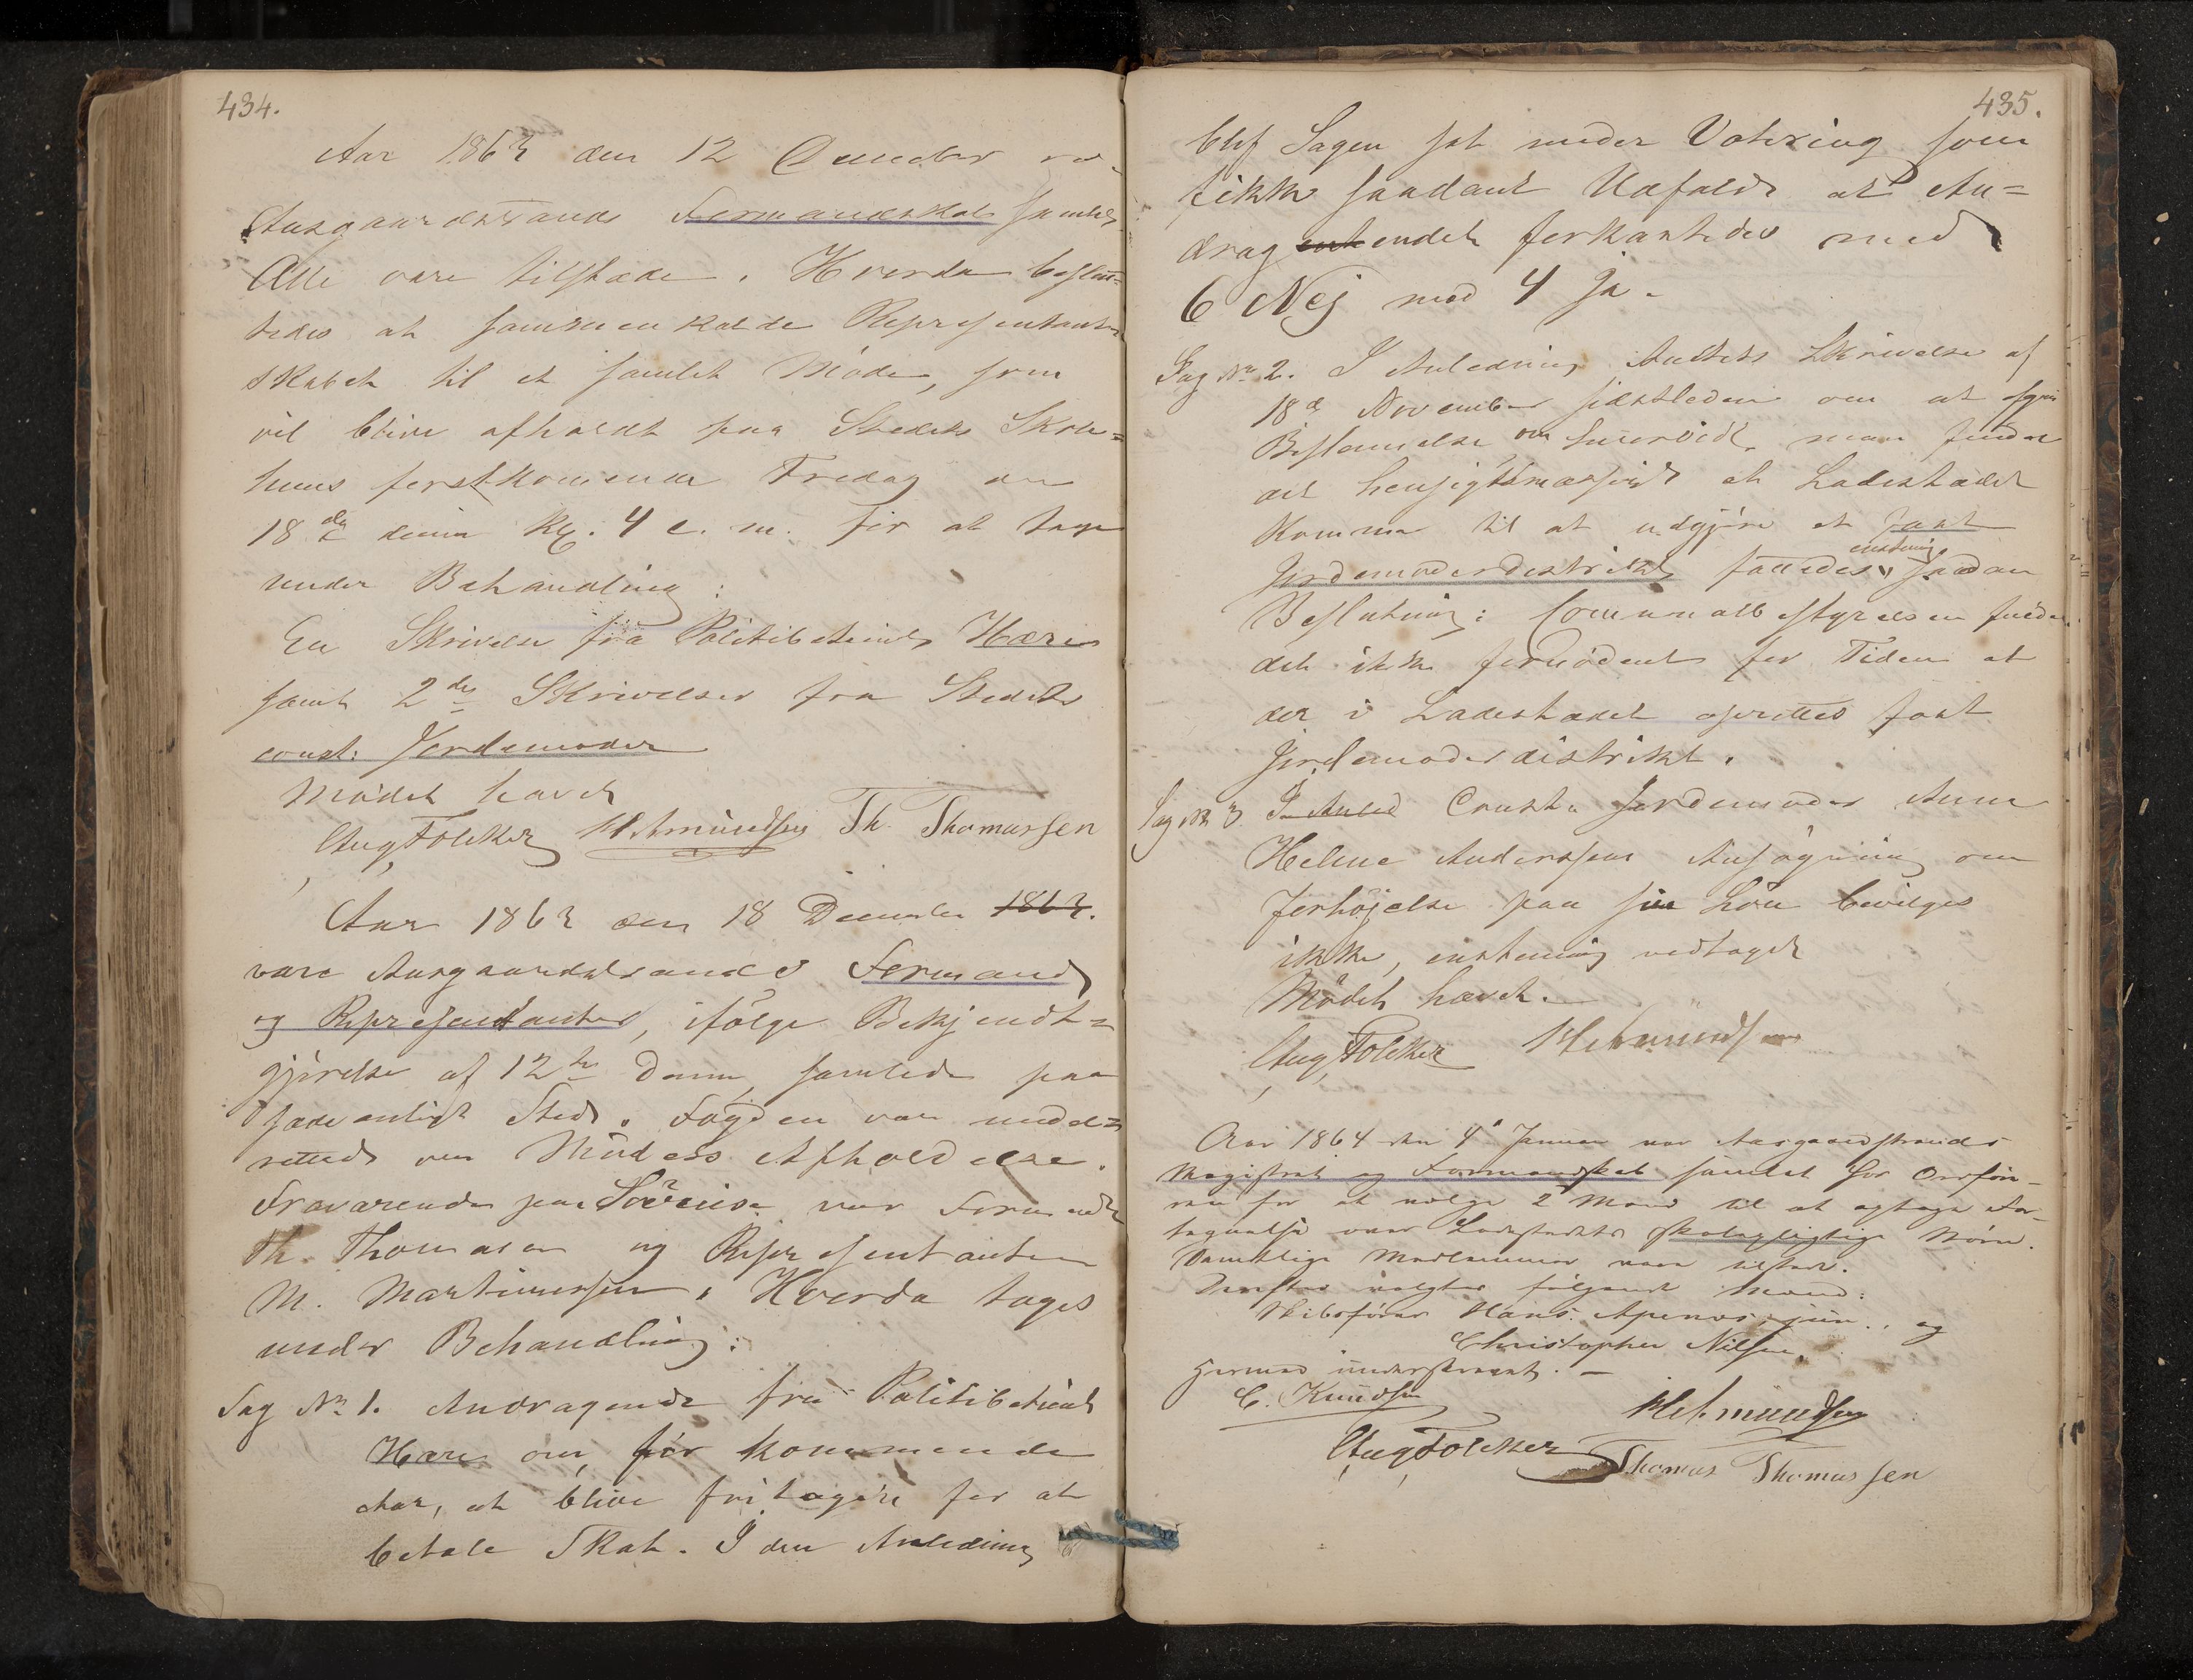 434.
Aar 1863 den 12 December var
Aasgaardstrands Formandskab samlet
Alle vare tilstæde. Hvorda beslut=
tedes at sammenkalde Representant
skabet til et samlet Møde, som
vil blive afholdt paa Stedets Skole=
huus førstkommende Fredag den
18de dennes Kl. 4 e. m. for at tage
under Behandling:
En Skrivelse fra Politibetjent Hære
samt 2de Skrivelser fra Stedets
const: Jordemoder
Mødet hævet
Aug Foleker H Amundsen Th. Thomassen
Aar 1863 den 18 December 1863.
vare Aasgaardstrands Formænd
og Representanter, ifølge Bekjendt=
gjørelse af 12te dennes, samlede paa
sædvanligt Sted. Fogden var under=
rettet om Mødets Afholdelse.
Fraværende paa Søreise var Formand
Th. Thomasen og Representanten
M. Martinussen. Hvorda toges
under Behandling:
Sag No 1. Andragende fra Politibetjent
Hære om, for kommende
Aar, at blive fritagen for at
betale Skat. I den Anledning
435.
blef Sagen sat under Votering som
fikk saadant Udfald at An=
dragendet forkastedes med
6 Nej mod 4 Ja.
Sag No 2. I Anledning Amtets Skrivelse af
18de November sidstleden om at afgive
Bestemmelse om hvorvidt man finder
det hensigtsmæssigt at Ladestædet
kommer til at udgjøre et fast
Jordemoderdistrikt fattedes enstemmig saadan
Beslutning: Communalbestyrelsen finder
det ikke fornødent for Tiden at
der i Ladestædet oprettes fast
Jordemoderdistrikt.
Sag No 3. I Anled Const. Jordemoder Anne
Helene Anderssens Ansøgning om
Forhøjelse paa sin Løn bevilges
ikke, enstemmig vedtaget
Mødet hævet.
Aug Foleker H Amundsen
Aar 1864 den 4de Januar var Aasgaardstrands
Magistrat og Formandskab samlet for
at vælge 2 Mænd til at optage For-
tegnelse over Ladestedets skolepligtige Børn.
Samtlige Medlemmer vare tilstede.
Derefter valgtes følgende Mænd:
Skibsfører Hans Apenæs jun. og
Christopher Nilsen.
Hermed underskrevet. —
C. Knudsen H Amundsen
Aug Foleker Thomas Thomassen